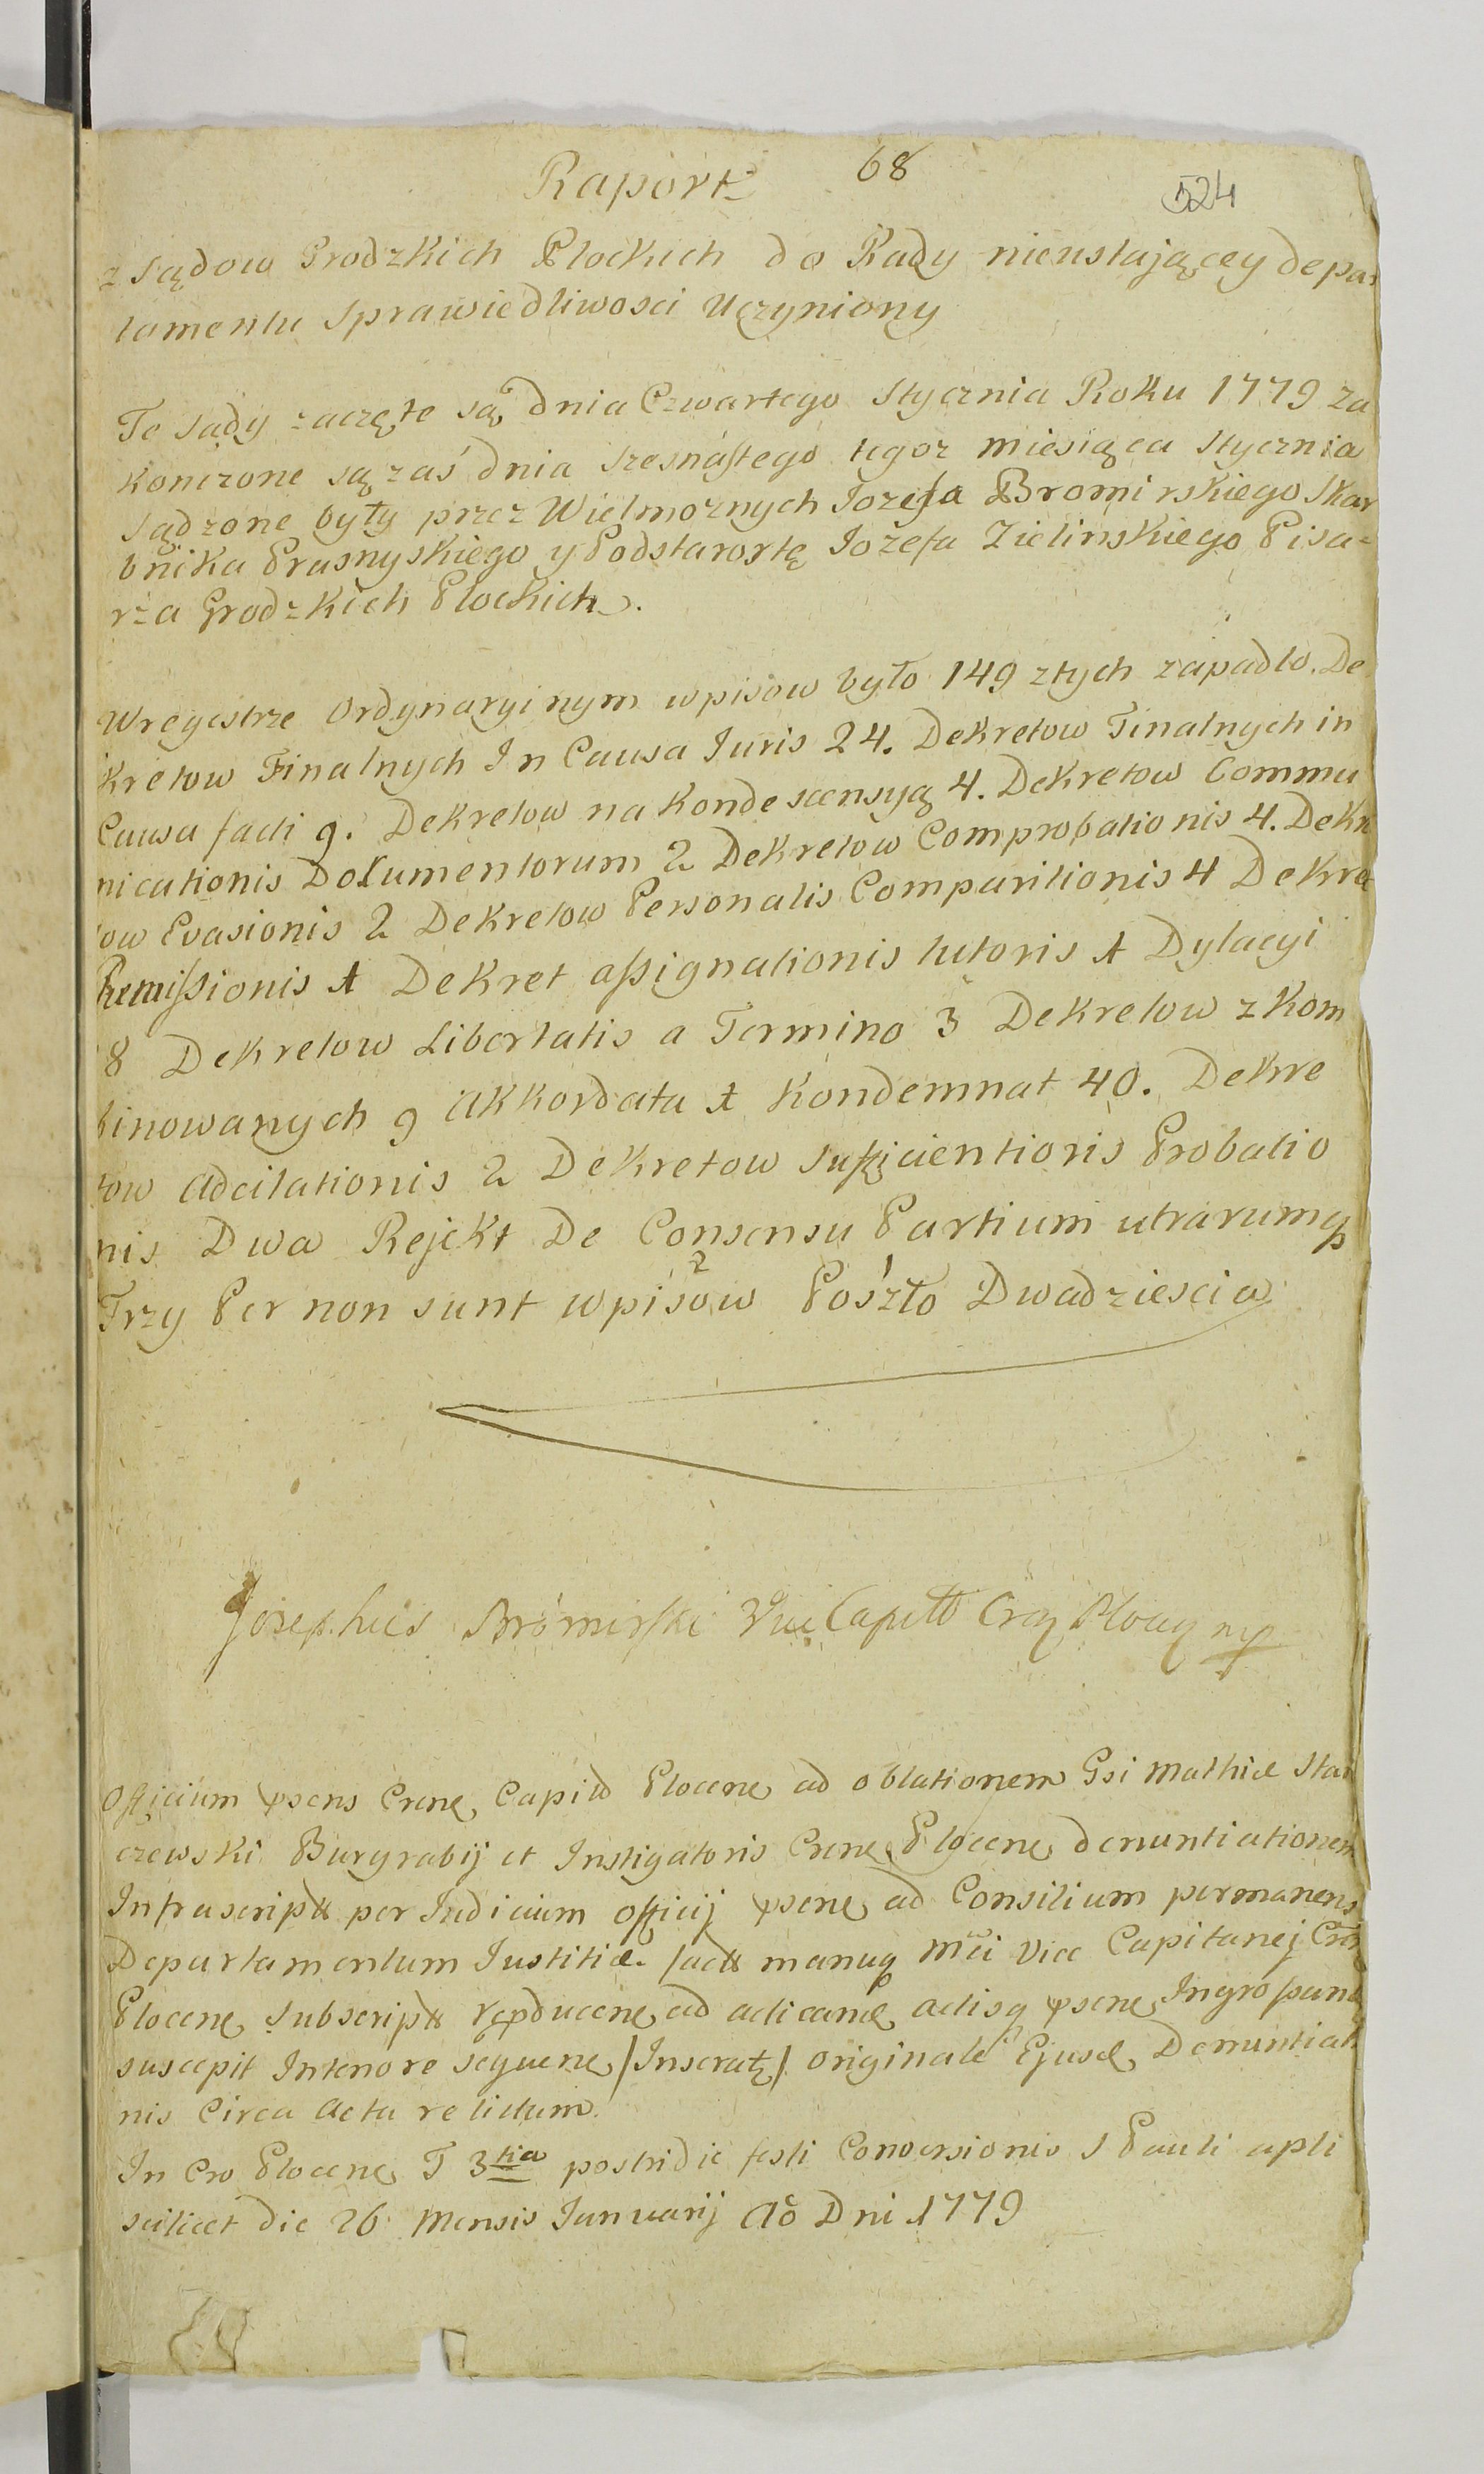 Raport 68
524
z Sądow Grodzkich Płockich do Rady nieustającey depar
tamentu Sprawiedliwosci Uczyniony
Te sądy zaczęte są dnia Czwartego Stycznia Roku 1779 za
konczone są zaś dnia Szesnastego tegoz miesiąca Stycznia
Sądzone były przez Wielmoznych Iozefa Bromirskiego Skar
bnika Prasnyskiego y Podstarostę Iozefa Zielinskiego Pisa=
rza Grodzkich Płockich.
W regestrze Ordynaryinym wpisow było 149 z tych zapadło. De
kretow Finalnych In Causa Iuris 24. Dekretow Finalnych in
Causa facti 9. Dekretow na Kondescensyą 4. Dekretow Commu
nicationis Dokumentorum 2 Dekretow Comprobationis 4. Dekre
tow Evasionis 2 Dekretow Personalis Comparitionis 4 Dekret
Remissionis 1 Dekret assignationis tutoris 1 Dylacyi
8 Dekretow Libertatis a Termino 3 Dekretow z Kom
binowanych 9 Akkordata 1 Kondemnat 40. Dekre
tow Adcitationis 2 Dekretow Sufficientioris Probatio
nis Dwa Rejekt De Consensu Partium utrarumq
Trzy Per non sunt wpisow Poszło Dwadziescia 2
Josephus Bromirski Vice Capitt Cra Ploc mp
Officium psens Crene Capitl Plocene ad oblationem Gsi Mathiæ Star
czewski Burgrabij et Instigatoris Crene Plocene denuntiationem
Infrascript per Iudicium officij psene ad Consilium permanens
Departamentum Iustitiæ fact manuq Mci Vice Capitanej Cren
Plocene Subscript repducene ad acticand actisq psene Ingrossand
suscepit In tenore sequene /Inserat/ originale Ejusd Denuntiatio
nis Circa Acta relictum.
In Cro Plocene F 3tia postridie festi Conversionis S Pauli apli
scilicet die 26 Mensis Ianuarij Ao Dni 1779